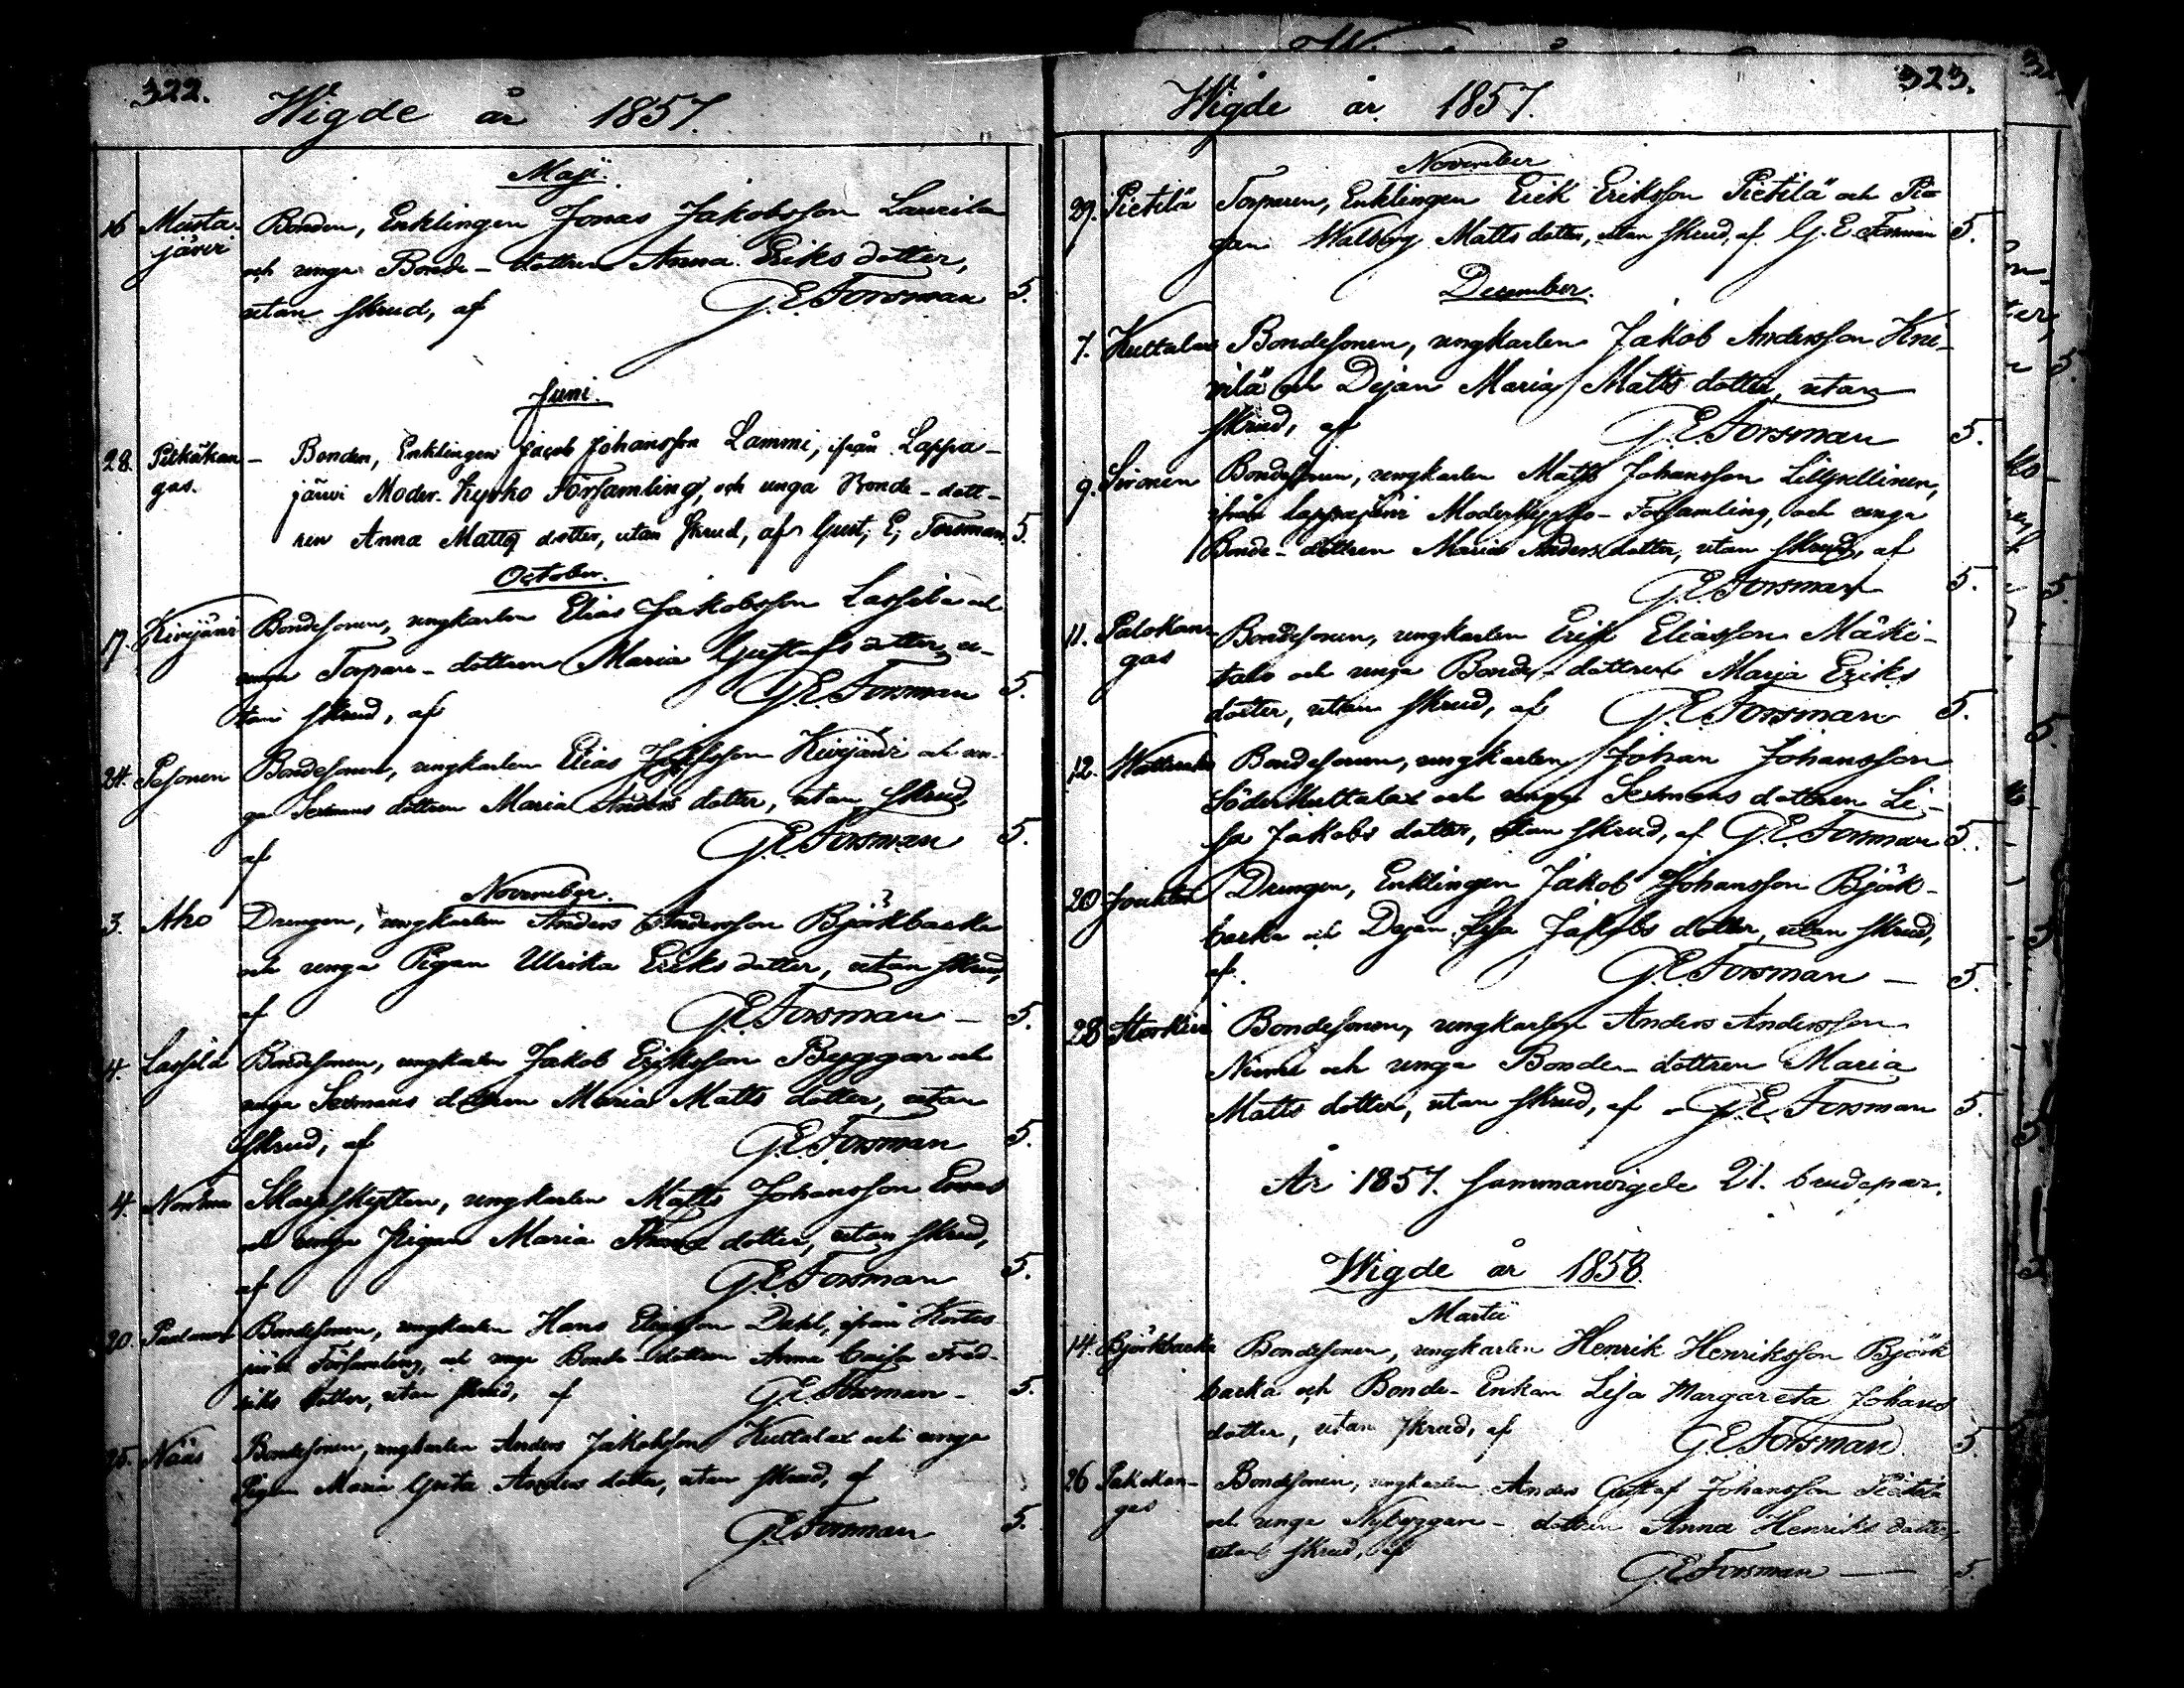 322.
Wigde år 1857.
Maji.
16 Musta- Bonden, Enklingen Jonas Jakobsson Laurila
järvi och unga Bonde-dottren Anna Eriks dotter,
utan skrud, af G.E. Forsman 5.
Juni.
28. Pitkäkan- Bonden, Enklingen Jacob Johansson Lammi, ifrån Lappa-
gas. järvi Moder-Kyrko Församling, och unga Bonde-dott-
ren Anna Matts dotter, utan skrud, af Gust. E. Forsman. 5.
October.
17. Kivijärvi Bondesonen, ungkarlen Elias Jakobsson Lassila och
unga Torpare-dottren Maria Gustafs dotter, u-
tan skrud, af G.E. Forsman 5.
24. Pesonen Bondesonen, ungkarlen Elias Kivijärvi och un-
ga Sexmans dottren Maria Anders dotter, utan skrud,
af G.E. Forsman 5.
November.
3. Aho Drengen, ungkarlen Anders Andersson Björkbacka
och unga Pigan Ulrika Eriks dotter, utan skrud,
af G.E. Forsman - 5.
4. Lassila Bondesonen, ungkarlen Jakob Eriksson Byggar och
unga Sexmans dottren Maria Matts dotter, utan
skrud, af G.E. Forsman 5.
4. ungkarlen Matts Johansson
och unga Pigan Maria dotter, utan skrud,
af G.E. Forsman 5.
20. Bondesonen, ungkarlen Hans Eliasson Dahl, ifrån Kortes
järvi Församling, och unga Bonde-dottren Anna Caisa Fred-
riks dotter, utan skrud, af G.E. Forsman - 5.
25. Näs Bondesonen, ungkarlen Anders Jakobsson Kuttalax och unga
Pigan Maria Greta Anders dotter, utan skrud, af
G.E. Forsman 5.
323.
Wigde år 1857.
November
29. Pietilä Torparen, Enklingen Erik Eriksson Pietilä och Pi-
gan Walborg Matts dotter, utan skrud, af G.E. Forsman 5.
December.
7. Kuttalax Bondesonen, ungkarlen Jakob Andersson Kni-
vilä och Dejan Maria Matts dotter, utan
skrud, af G.E. Forsman 5.
9. Sironen Bondesonen, ungkarlen Matts Johansson
ifrån Lappajärvi Moderkyrko-Församling, och unga
Bonde-dottren Maria Anders dotter, utan skrud, af
G.E. Forsman 5.
11. Palokan- Bondesonen, ungkarlen Erik Eliasson Mäki-
gas talo och unga Bonde-dottren Marja Eriks
dotter, utan skrud, af G.E. Forsman 5.
12. Bondesonen, ungkarlen Johan Johansson
Söderkuttalax och unga Sexmans dottren Li-
sa Jakobs dotter, utan skrud, af G.E. Forsman 5.
20 Drengen, Enklingen Jakob Johansson Björk-
backa och Dejan Lisa Jakobs dotter, utan skrud,
af. G.E. Forsman - 5.
28 Bondesonen, ungkarlen Anders Andersson
och unga Bonde-dottren Maria
Matts dotter, utan skrud, af - G.E. Forsman 5.
År 1857. sammanvigde 21. brudepar.
Wigde år 1858.
Martii
14. Björkbacka Bondesonen, ungkarlen Henrik Henriksson Björk
backa och Bonde-Enkan Lisa Margareta Johans
dotter, utan skrud, af G.E. Forsman 5.
26 Bondesonen, ungkarlen Anders Gustaf Johansson Pietilä
gas och unga Nybyggare-dottren Anna Henriks dotter,
utan skrud, af
G.E. Forsman - 5.